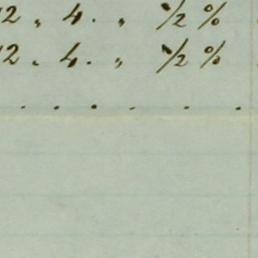 12 „ 4. „ ½ %
12 . 4. „ ½ %